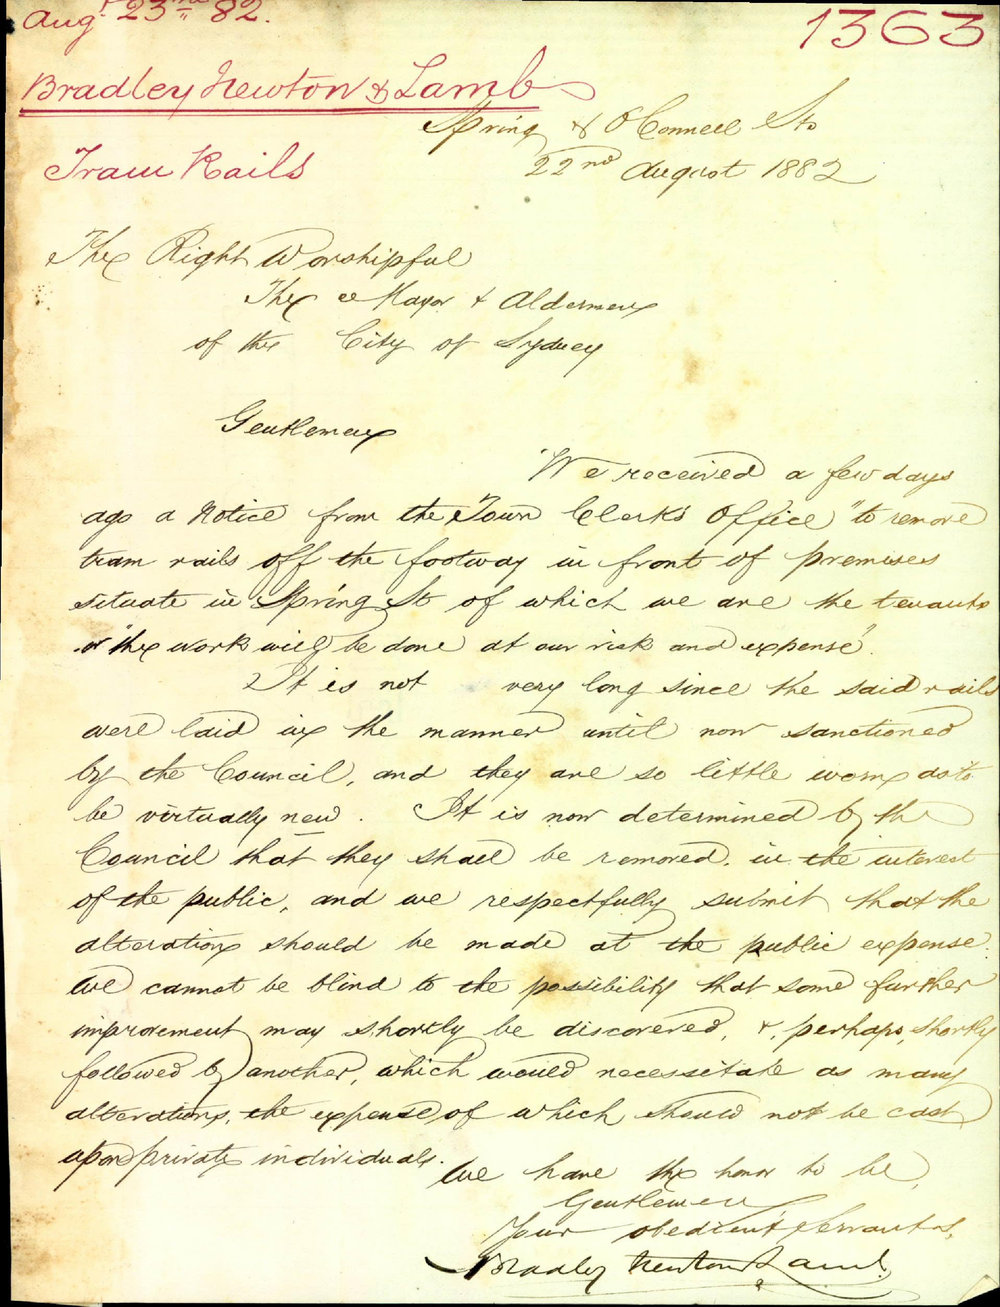 Augt 23rd 82.
1363
Bradley Newton & Lamb
Spring & O'Connell Sts
Tram Rails
22nd August 1882
The Right Worshipful
The Mayor & Aldermen
of the City of Sydney
Gentlemen
We received a few days
ago a Notice from the Town Clerk's Office "to remove
tram rails off the footway in front of premises
situate in Spring St of which we are the tenants
or "the work will be done at our risk and expense".
It is not very long since the said rails
were laid in the manner until now sanctioned
by the Council, and they are so little worn as to
be virtually new. It is now determined by the
Council that they shall be removed. in the interest
of the public, and we respectfully submit that the
alteration should be made at the public expense.
We cannot be blind to the possibility that some further
improvement may shortly be discovered, &, perhaps, shortly
followed by another, which would necessitate as many
alterations, the expense of which should not be cast
upon private individuals.
We have the honor to be,
Gentlemen
Your obedient Servants,
Bradley Newton & Lamb